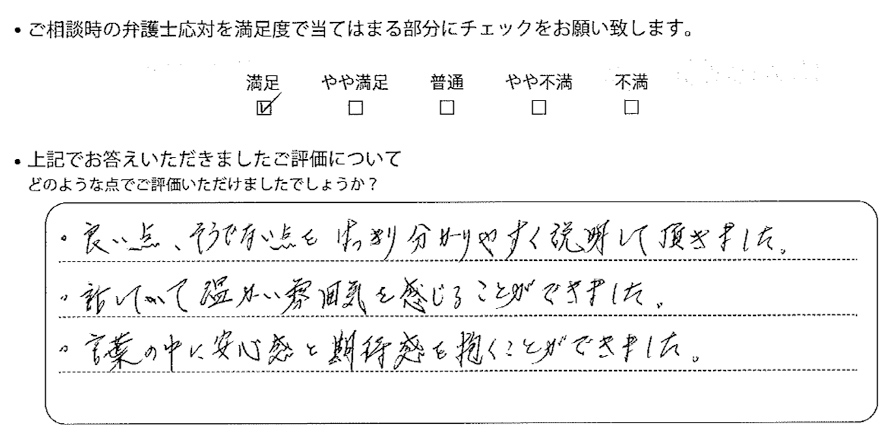 ・ご相談時の弁護士応対を満足度で当てはまる部分にチェックをお願い致します。
満足 やや満足 普通 やや不満 不満
☑ □ □ □ □
・上記でお答えいただきましたご評価について
どのような点でご評価いただけましたでしょうか？
・良い点、そうでない点を はっきり分かりやすく説明して頂きました。
・話してみて温かい雰囲気を感じることができました。
・言葉の中に安心感と期待感を抱くことができました。